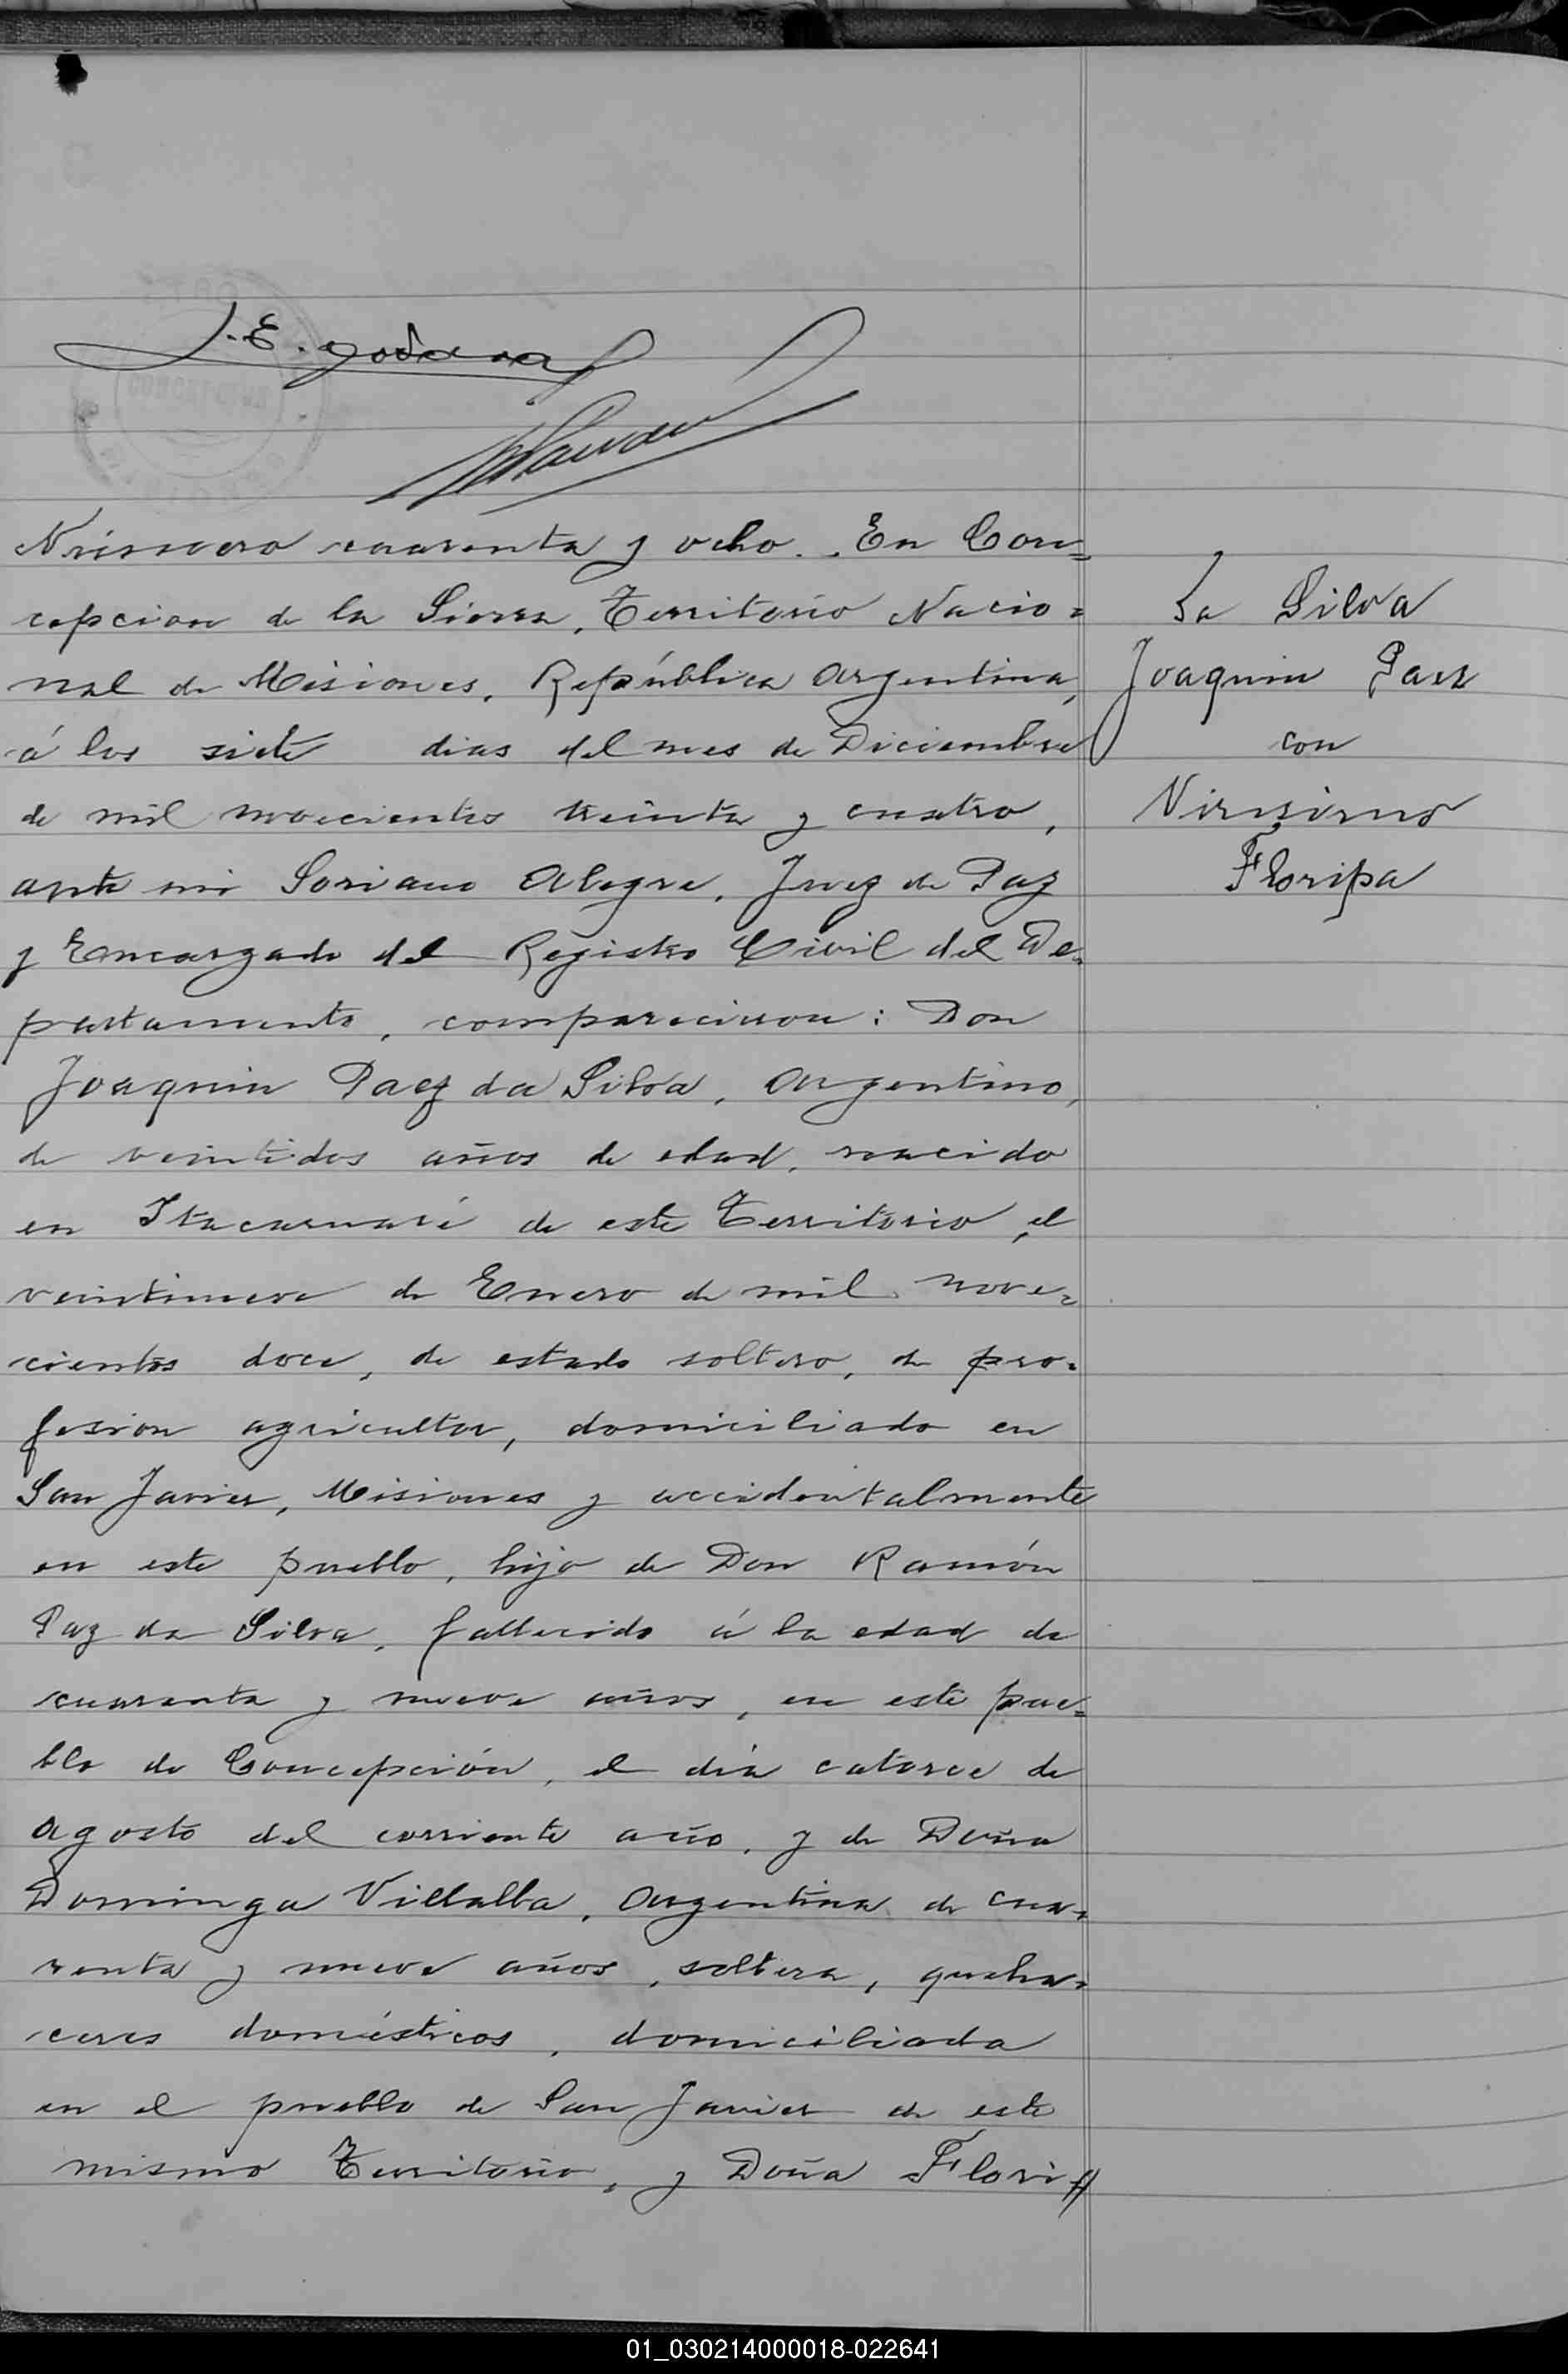 J. E. Godana
Número cuarenta y ocho. . En Con=
cepcion de la Sierra, Territorio Nacio=
nal de Misiones, República Argentina,
á los siete dias del mes de Diciembre
de mil novecientos treinta y cuatro,
ante mi Soriano Alegre, Juez de Paz
y Encargado del Registro Civil del De=
partamento, comparecieron: Don
Joaquin Paez da Silva, Argentino,
de veintidos años de edad, nacido
en Itacaruaré de este Territorio, el
veintinueve de Enero de mil nove=
cientos doce, de estado soltero, de pro=
fesion agricultor, domiciliado en
San Javier, Misiones y accidentalmente
en este pueblo, hijo de Don Ramón
Paz da Silva, fallecido á la edad de
cuarenta y nueve años, en este pue=
blo de Concepción, el dia catorce de
Agosto del corriente año, y de Doña
Dominga Villalba, Argentina de cua=
renta y nueve años, soltera, queha=
ceres domésticos, domiciliada
en el pueblo de San Javier de este
mismo Territorio, y Doña Flori//
Da Silva
Joaquin Paez
con
Floripa
01_030214000018-022641